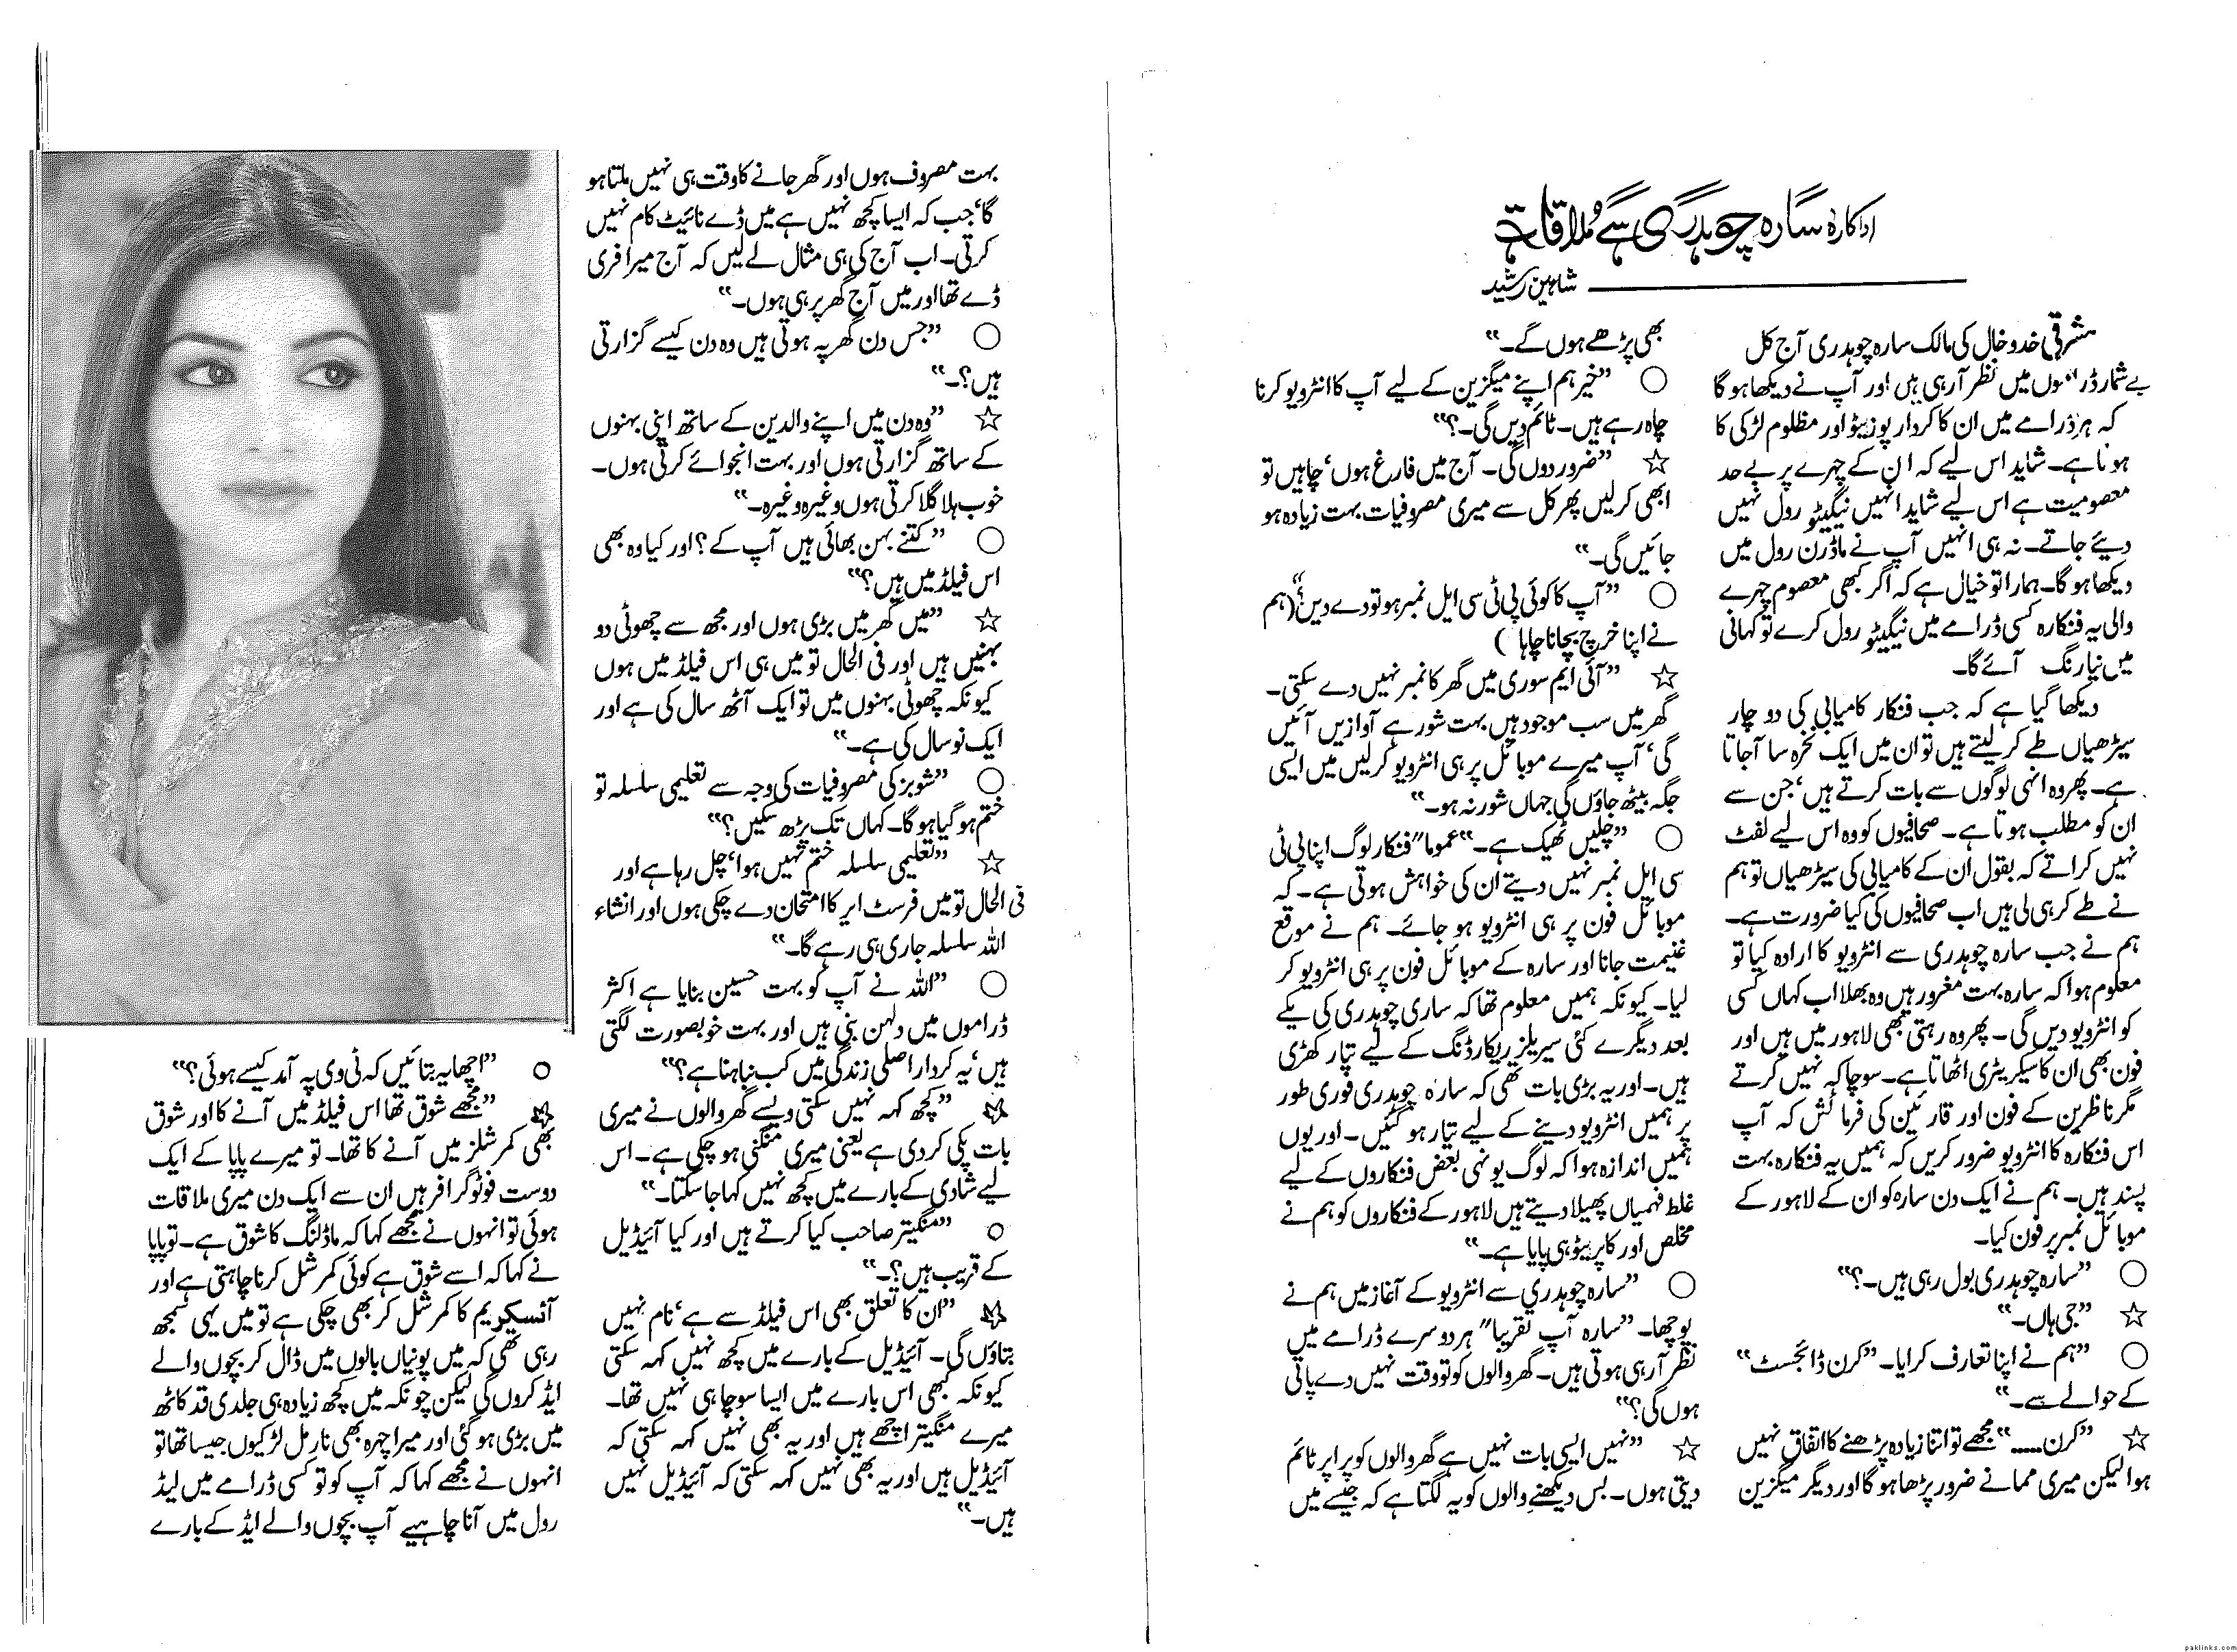 اداکارہ سارہ چوہدری سے ملاقات
شاہین رشید
مشرقی خدوخال کی مالک سارہ چوہدری آج کل
بے شمار ڈراموں میں نظر آرہی ہیں اور آپ نے دیکھا ہو گا
کہ ہر ڈرامے میں ان کا کردار پوزیٹو اور مظلوم لڑکی کا
ہوتا ہے۔ شاید اس لیے کہ ان کے چہرے پر بے حد
معصومیت ہے اس لیے شاید انہیں نیگیٹو رول نہیں
دیئے جاتے۔ نہ ہی انہیں آپ نے ماڈرن رول میں
دیکھا ہو گا۔ ہمارا تو خیال ہے کہ اگر کبھی معصوم چہرے
والی یہ فنکارہ کسی ڈرامے میں نیگیٹو رول کرے تو کہانی
میں نیا رنگ آئے گا۔
دیکھا گیا ہے کہ جب فنکار کامیابی کی دو چار
سیڑھیاں طے کر لیتے ہیں تو ان میں ایک نخرہ سا آجاتا
ہے۔ پھر وہ انہی لوگوں سے بات کرتے ہیں‘ جن سے
ان کو مطلب ہوتا ہے۔ صحافیوں کو وہ اس لیے لفٹ
نہیں کراتے کہ بقول ان کے کامیابی کی سیڑھیاں تو ہم
نے طے کر ہی لی ہیں اب صحافیوں کی کیا ضرورت ہے۔
ہم نے جب سارہ چوہدری سے انٹرویو کا ارادہ کیا تو
معلوم ہوا کہ سارہ بہت مغرور ہیں وہ بھلا اب کہاں کسی
کو انٹرویو دیں گی۔ پھر وہ رہتی بھی لاہور میں ہیں اور
فون بھی ان کا سیکریٹری اٹھاتا ہے۔ سوچا کہ نہیں کرتے
مگر ناظرین کے فون اور قارئین کی فرمائش کہ آپ
اس فنکارہ کا انٹرویو ضرور کریں کہ ہمیں یہ فنکارہ بہت
پسند ہیں۔ ہم نے ایک دن سارہ کو ان کے لاہور کے
موبائل نمبر پر فون کیا۔
○ ”سارہ چوہدری بول رہی ہیں۔؟“
☆ ”جی ہاں۔“
○ ”ہم نے اپنا تعارف کرایا۔ ”کرن ڈائجسٹ“
کے حوالے سے۔“
☆ ”کرن.....“ مجھے تو اتنا زیادہ پڑھنے کا اتفاق نہیں
ہوا لیکن میری مما نے ضرور پڑھا ہو گا اور دیگر میگزین
بھی پڑھے ہوں گے۔“
○ ”خیر ہم اپنے میگزین کے لیے آپ کا انٹرویو کرنا
چاہ رہے ہیں۔ ٹائم دیں گی۔؟“
☆ ”ضرور دوں گی۔ آج میں فارغ ہوں‘ چاہیں تو
ابھی کر لیں پھر کل سے میری مصروفیات بہت زیادہ ہو
جائیں گی۔“
○ ”آپ کا کوئی پی ٹی سی ایل نمبر ہو تو دے دیں“ (ہم
نے اپنا خرچ بچانا چاہا)
☆ ”آئی ایم سوری میں گھر کا نمبر نہیں دے سکتی۔
گھر میں سب موجود ہیں بہت شور ہے آوازیں آئیں
گی‘ آپ میرے موبائل پر ہی انٹرویو کر لیں میں ایسی
جگہ بیٹھ جاؤں گی جہاں شور نہ ہو۔“
○ ”چلیں ٹھیک ہے۔“ عموما” فنکار لوگ اپنا پی ٹی
سی ایل نمبر نہیں دیتے ان کی خواہش ہوتی ہے۔ کہ
موبائل فون پر ہی انٹرویو ہو جائے۔ ہم نے موقع
غنیمت جانا اور سارہ کے موبائل فون پر ہی انٹرویو کر
لیا۔ کیونکہ ہمیں معلوم تھا کہ ساری چوہدری کی یکے
بعد دیگرے کئی سیریلز ریکارڈنگ کے لیے تیار کھڑی
ہیں۔ اور یہ بڑی بات تھی کہ سارہ چوہدری فوری طور
پر ہمیں انٹرویو دینے کے لیے تیار ہو گئیں۔ اور یوں
ہمیں اندازہ ہوا کہ لوگ یونہی بعض فنکاروں کے لیے
غلط فہمیاں پھیلا دیتے ہیں لاہور کے فنکاروں کو ہم نے
مخلص اور کاپریٹو ہی پایا ہے۔“
○ ”سارہ چوہدری سے انٹرویو کے آغاز میں ہم نے
پوچھا۔ ”سارہ آپ تقریبا” ہر دوسرے ڈرامے میں
نظر آرہی ہوتی ہیں۔ گھر والوں کو تو وقت نہیں دے پاتی
ہوں گی؟“
☆ ”نہیں ایسی بات نہیں ہے گھر والوں کو پراپر ٹائم
دیتی ہوں۔ بس دیکھنے والوں کو یہ لگتا ہے کہ جیسے میں
بہت مصروف ہوں اور گھر جانے کا وقت ہی نہیں ملتا ہو
گا‘ جب کہ ایسا کچھ نہیں ہے میں ڈے نائیٹ کام نہیں
کرتی۔ اب آج کی ہی مثال لے لیں کہ آج میرا فری
ڈے تھا اور میں آج گھر پر ہی ہوں۔“
○ ”جس دن گھر پہ ہوتی ہیں وہ دن کیسے گزارتی
ہیں؟۔“
☆ ”وہ دن میں اپنے والدین کے ساتھ اپنی بہنوں
کے ساتھ گزارتی ہوں اور بہت انجوائے کرتی ہوں۔
خوب ہلا گلا کرتی ہوں وغیرہ وغیرہ۔“
○ ”کتنے بہن بھائی ہیں آپ کے؟ اور کیا وہ بھی
اس فیلڈ میں ہیں؟“
☆ ”میں گھر میں بڑی ہوں اور مجھ سے چھوٹی دو
بہنیں ہیں اور فی الحال تو میں ہی اس فیلڈ میں ہوں
کیونکہ چھوٹی بہنوں میں تو ایک آٹھ سال کی ہے اور
ایک نو سال کی ہے۔“
○ ”شوبز کی مصروفیات کی وجہ سے تعلیمی سلسلہ تو
ختم ہو گیا ہو گا۔ کہاں تک پڑھ سکیں؟“
☆ ”تعلیمی سلسلہ ختم نہیں ہوا‘ چل رہا ہے اور
فی الحال تو میں فرسٹ ایر کا امتحان دے چکی ہوں اور انشاء
اللہ سلسلہ جاری ہی رہے گا۔“
○ ”اللہ نے آپ کو بہت حسین بنایا ہے اکثر
ڈراموں میں دلہن بنی ہیں اور بہت خوبصورت لگتی
ہیں‘ یہ کردار اصلی زندگی میں کب نباہنا ہے؟“
☆ ”کچھ کہہ نہیں سکتی ویسے گھر والوں نے میری
بات پکی کر دی ہے یعنی میری منگنی ہو چکی ہے۔ اس
لیے شادی کے بارے میں کچھ نہیں کہا جا سکتا۔“
○ ”منگیتر صاحب کیا کرتے ہیں اور کیا آئیڈیل
کے قریب ہیں؟۔“
☆ ”ان کا تعلق بھی اس فیلڈ سے ہے‘ نام نہیں
بتاؤں گی۔ آئیڈیل کے بارے میں کچھ نہیں کہہ سکتی
کیونکہ کبھی اس بارے میں ایسا سوچا ہی نہیں تھا۔
میرے منگیتر اچھے ہیں اور یہ بھی نہیں کہہ سکتی کہ
آئیڈیل ہیں اور یہ بھی نہیں کہہ سکتی کہ آئیڈیل نہیں
ہیں۔“
○ ”اچھا یہ بتائیں کہ ٹی وی پہ آمد کیسے ہوئی؟“
☆ ”مجھے شوق تھا اس فیلڈ میں آنے کا اور شوق
بھی کمرشلز میں آنے کا تھا۔ تو میرے پاپا کے ایک
دوست فوٹو گرافر ہیں ان سے ایک دن میری ملاقات
ہوئی تو انہوں نے مجھے کہا کہ ماڈلنگ کا شوق ہے۔ تو پاپا
نے کہا کہ اسے شوق ہے کوئی کمرشل کرنا چاہتی ہے اور
آئسکریم کا کمرشل کر بھی چکی ہے تو میں یہی سمجھ
رہی تھی کہ میں پونیاں بالوں میں ڈال کر بچوں والے
ایڈ کروں گی لیکن چونکہ میں کچھ زیادہ ہی جلدی قد کاٹھ
میں بڑی ہو گئی اور میرا چہرہ بھی نارمل لڑکیوں جیسا تھا تو
انہوں نے مجھے کہا کہ آپ کو تو کسی ڈرامے میں لیڈ
رول میں آنا چاہیے آپ بچوں والے ایڈ کے بارے
paklinks.com